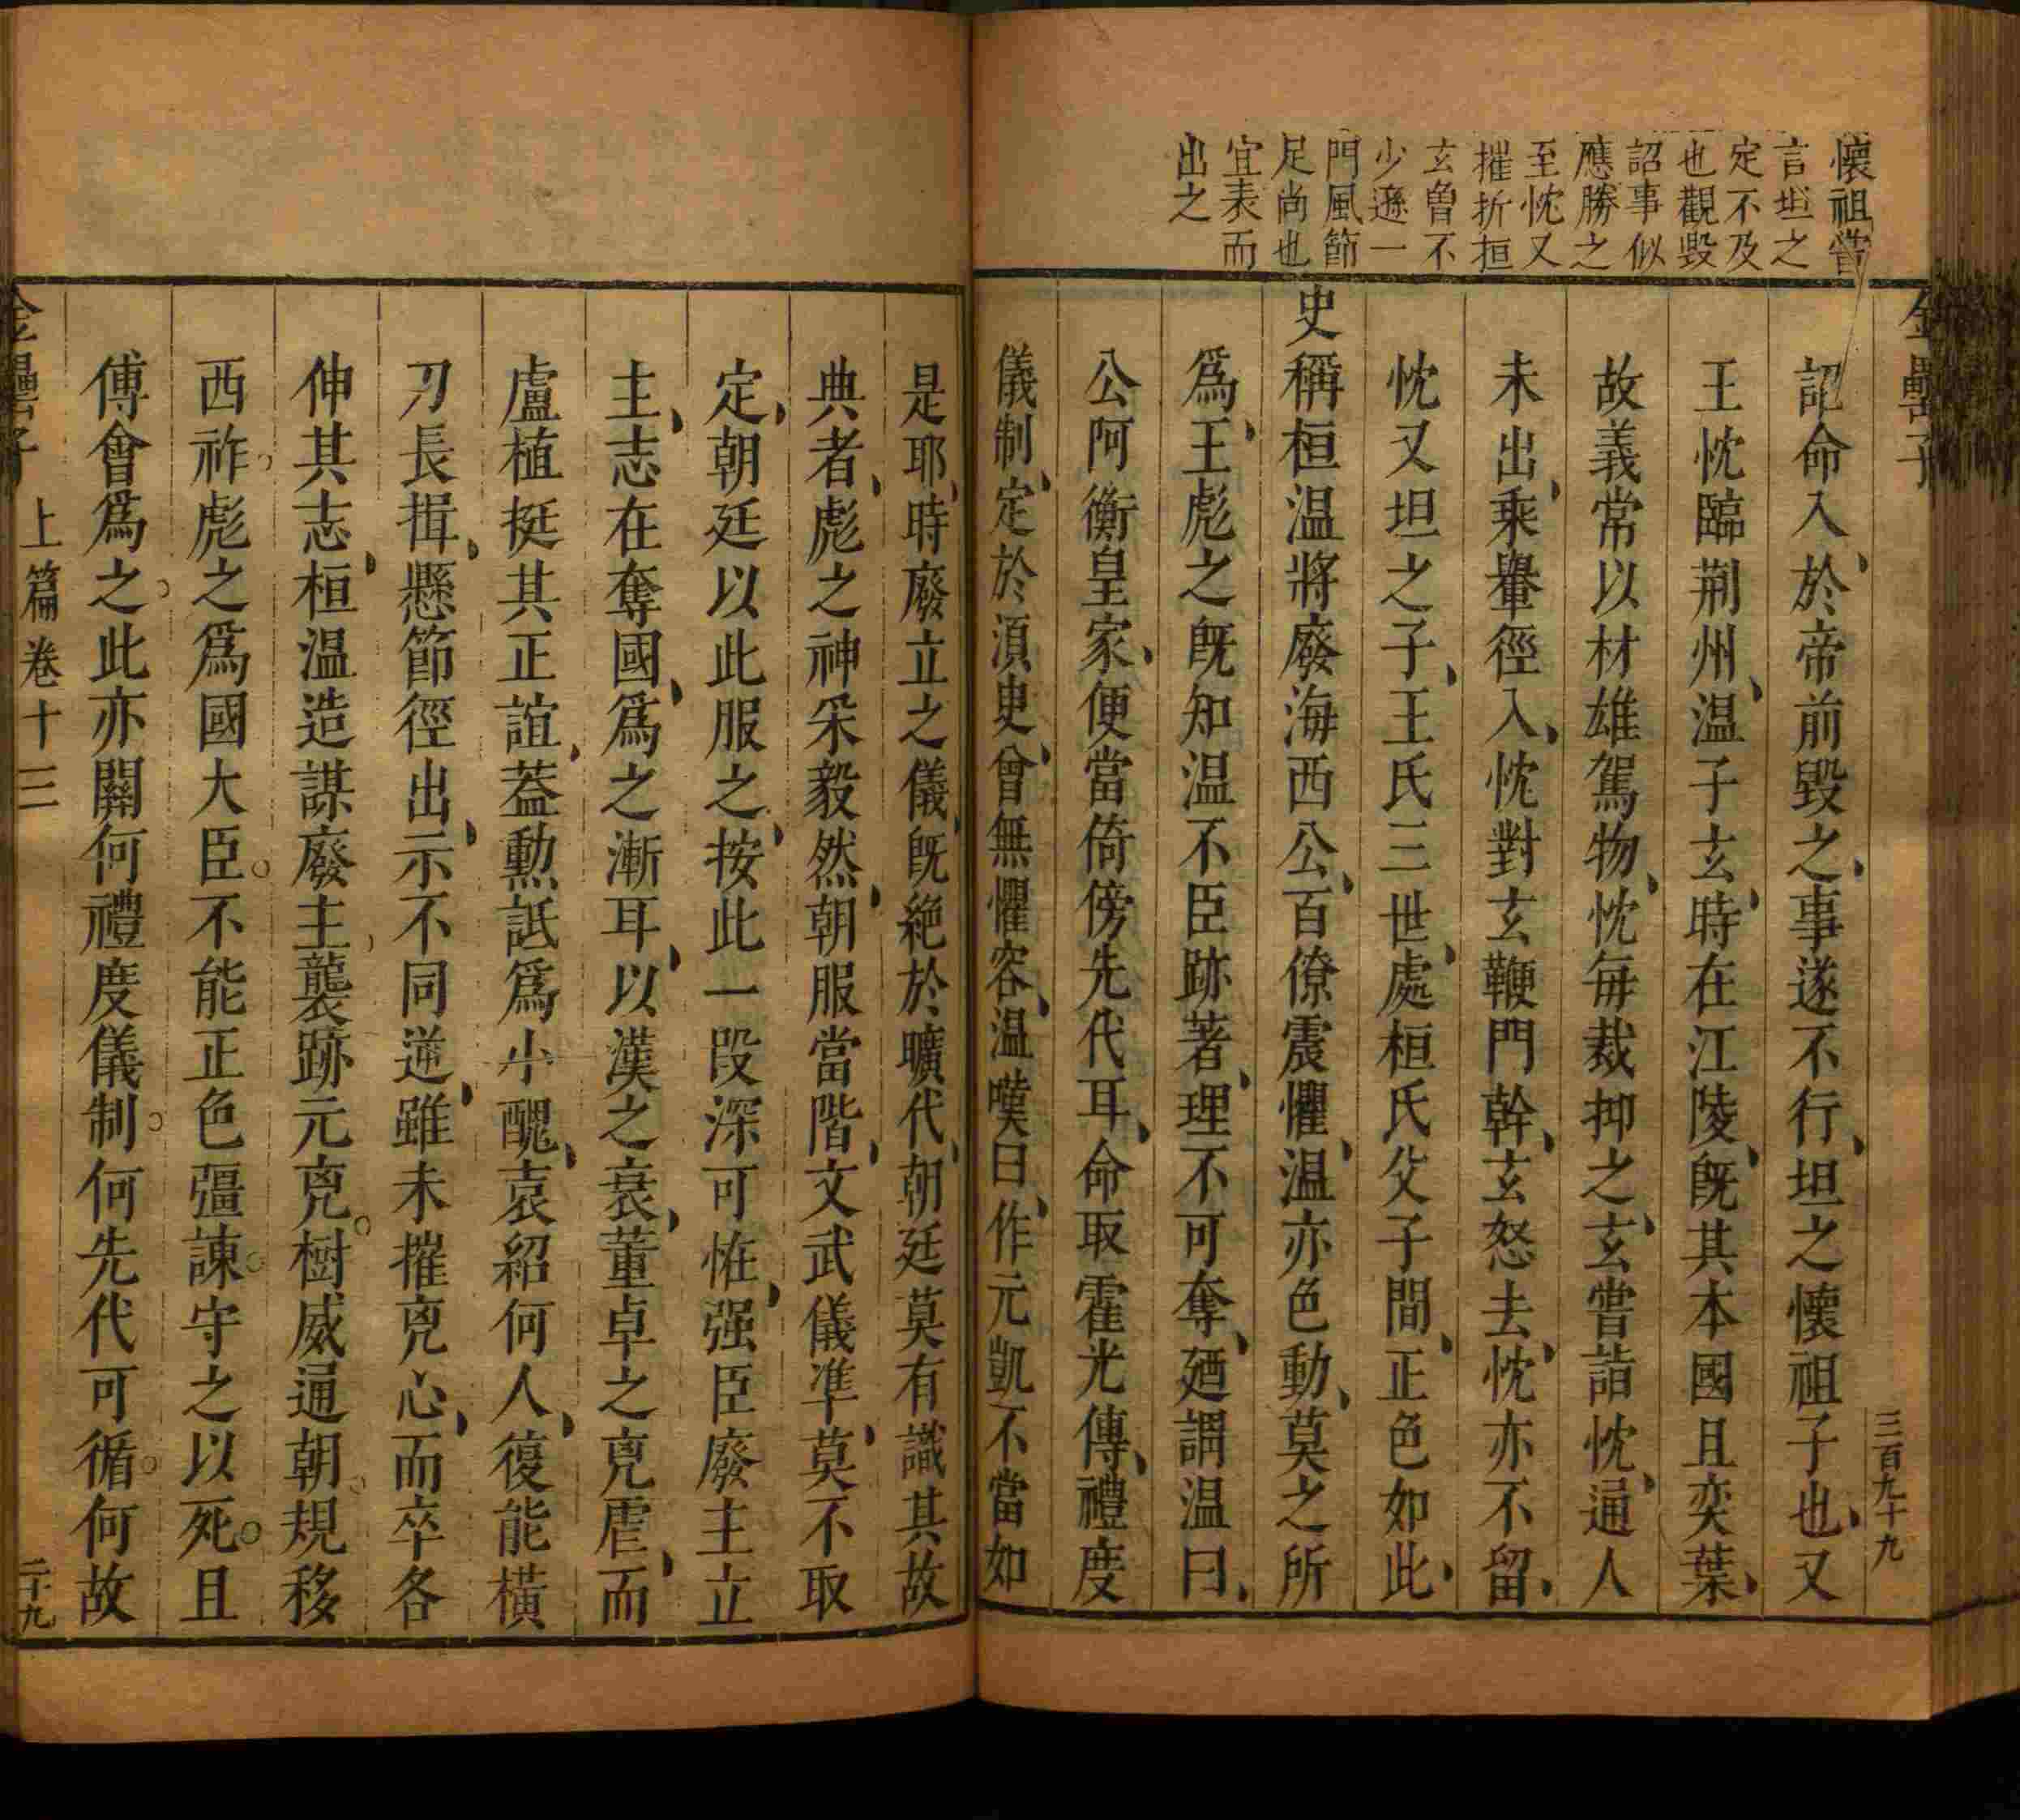 懷祖嘗
言坦之
定不及
也觀毀
詔事似
應勝之
至忱又
摧折桓
玄曾不
少遜一
門風節
足尚也
宜表而
出之
金罍子
三百九十九
詔命入於帝前毀之事遂不行坦之懷祖子也又
王忱臨荆州温子玄時在江陵旣其本國且奕葉
故義常以材雄駕物忱每裁抑之玄嘗詣忱通人
未出乘轝徑入忱對玄鞭門幹玄怒去忱亦不留
忱又坦之子王氏三世處桓氏父子間正色如此
史稱桓温將廢海西公百僚震懼温亦色動莫之所
爲王彪之旣知温不臣跡著理不可奪廼謂温曰
公阿衡皇家便當倚傍先代耳命取霍光傳禮度
儀制定於湏臾曾無懼容温嘆曰作元凱不當如
是耶時廢立之儀旣絶於曠代朝廷莫有識其故
典者彪之神采毅然朝服當階文武儀準莫不取
定朝廷以此服之按此一段深可恠强臣廢主立
主志在奪國爲之漸耳以漢之衰董卓之兇虐而
盧植挺其正誼葢勳詆爲小醜袁紹何人復能橫
刀長揖懸節徑出示不同逆雖未摧兇心而卒各
伸其志桓温造謀廢主襲跡元兇樹威逼朝規移
西祚彪之爲國大臣不能正色彊諫守之以死且
傅會爲之此亦關何禮度儀制何先代可循何故
金罍子
上篇卷十三
二十九